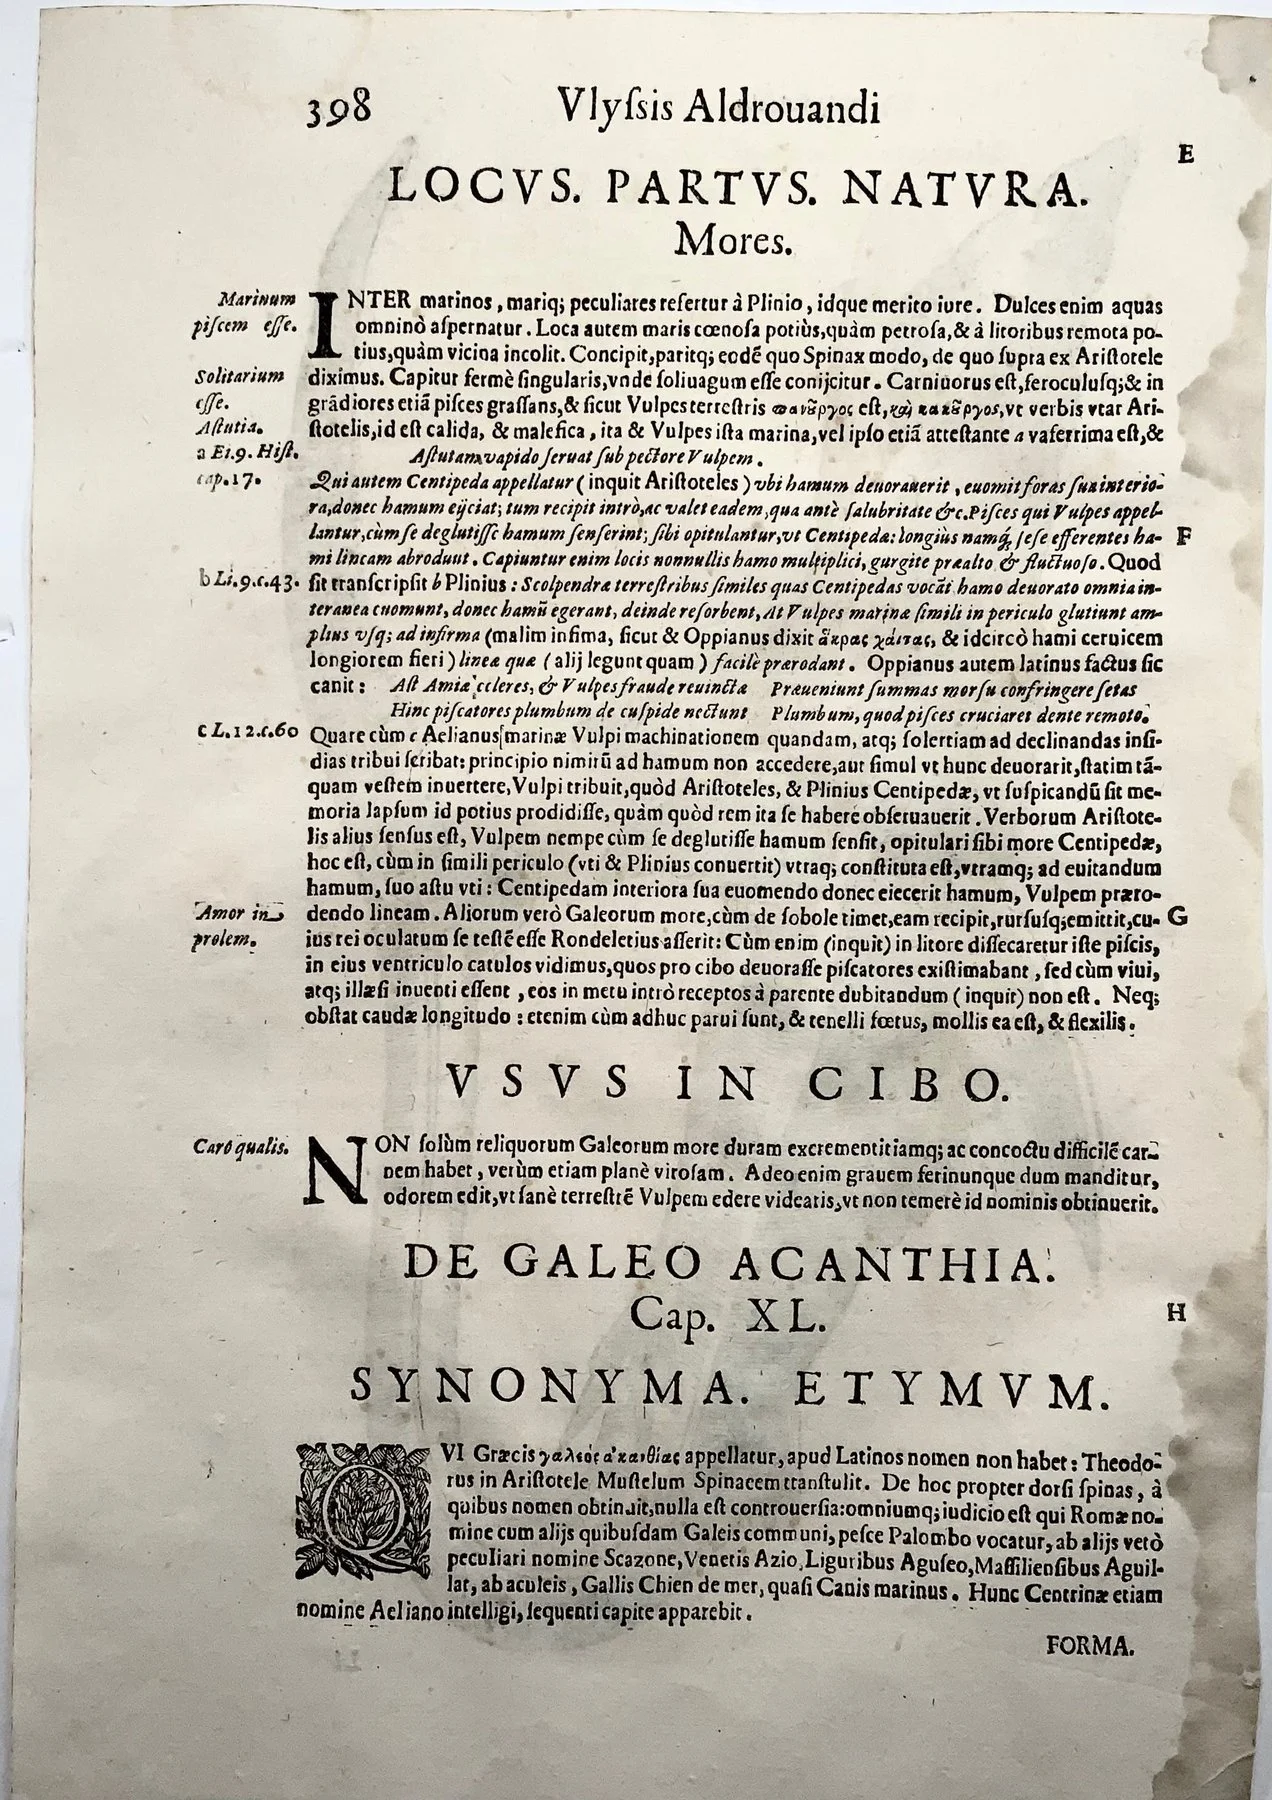 398 Vlyſsis Aldrouandi
E
LOCVS. PARTVS. NATVRA.
Mores.
Marinum
piſcem eſſe.
INTER marinos, mariq; peculiares refertur à Plinio, idque merito iure. Dulces enim aquas
omninò aſpernatur. Loca autem maris cœnoſa potiùs, quàm petroſa, & à litoribus remota po-
tius, quàm vicina incolit. Concipit, paritq; eodē quo Spinax modo, de quo ſupra ex Ariſtotele
Solitarium
eſſe.
Aſtutia.
a Et. 9. Hiſt.
cap. 17.
diximus. Capitur fermè ſingularis, vnde ſoliuagum eſſe conijcitur. Carniuorus eſt, feroculuſq; & in
grādiores etiā piſces graſſans, & ſicut Vulpes terreſtris πανȣ̃ργος eſt, καὶ κακȣ̃ργος, vt verbis vtar Ari-
ſtotelis, id eſt calida, & malefica, ita & Vulpes iſta marina, vel ipſo etiā atteſtante a vaferrima eſt, &
Aſtutam vapido ſeruat ſub pectore Vulpem.
Qui autem Centipeda appellatur (inquit Ariſtoteles) vbi hamum deuorauerit, euomit foras ſua interio-
ra, donec hamum eijciat; tum recipit intrò, ac valet eadem, qua antè ſalubritate &c. Piſces qui Vulpes appel-
lantur, cùm ſe deglutiſſe hamum ſenſerint; ſibi opitulantur, vt Centipedæ: longiùs namq; ſeſe efferentes ha-
F
mi lineam abrodunt. Capiuntur enim locis nonnullis hamo multiplici, gurgite præalto & fluctuoſo. Quod
b Li. 9. c. 43.
ſit tranſcripſit b Plinius: Scolpendræ terreſtribus ſimiles quas Centipedas vocāt hamo deuorato omnia in-
teranea euomunt, donec hamū egerant, deinde reſorbent, At Vulpes marinæ ſimili in periculo glutiunt am-
plius vſq; ad infirma (malim infima, ſicut & Oppianus dixit ἄκρας χαίτας, & idcircò hami ceruicem
longiorem fieri) lineæ quæ (alij legunt quam) facilè prærodant. Oppianus autem latinus factus ſic
canit: Aſt Amiæ celeres, & Vulpes fraude reuincta Præueniunt ſummas morſu confringere ſetas
Hinc piſcatores plumbum de cuſpide nectunt Plumbum, quod piſces cruciaret dente remoto.
c L. 12. c. 60
Quare cùm c Aelianus marinæ Vulpi machinationem quandam, atq; ſolertiam ad declinandas inſi-
dias tribui ſcribat: principio nimirū ad hamum non accedere, aut ſimul vt hunc deuorarit, ſtatim tā-
quam veſtem inuertere, Vulpi tribuit, quòd Ariſtoteles, & Plinius Centipedæ, vt ſuſpicandū ſit me-
moria lapſum id potius prodidiſſe, quàm quòd rem ita ſe habere obſeruauerit. Verborum Ariſtote-
lis alius ſenſus eſt, Vulpem nempe cùm ſe deglutiſſe hamum ſenſit, opitulari ſibi more Centipedæ,
hoc eſt, cùm in ſimili periculo (vti & Plinius conuertit) vtraq; conſtituta eſt, vtramq; ad euitandum
hamum, ſuo aſtu vti: Centipedam interiora ſua euomendo donec eiecerit hamum, Vulpem præro-
Amor in
prolem.
dendo lineam. Aliorum verò Galeorum more, cùm de ſobole timet, eam recipit, rurſuſq; emittit, cu-
G
ius rei oculatum ſe teſtē eſſe Rondeletius aſſerit: Cùm enim (inquit) in litore diſſecaretur iſte piſcis,
in eius ventriculo catulos vidimus, quos pro cibo deuoraſſe piſcatores exiſtimabant, ſed cùm viui,
atq; illæſi inuenti eſſent, eos in metu intrò receptos à parente dubitandum (inquit) non eſt. Neq;
obſtat caudæ longitudo: etenim cùm adhuc parui ſunt, & tenelli fœtus, mollis ea eſt, & flexilis.
VSVS IN CIBO.
Caro qualis.
NON ſolùm reliquorum Galeorum more duram excrementitiamq; ac concoctu difficilē car-
nem habet, verùm etiam planè viroſam. Adeo enim grauem ferinunque dum manditur,
odorem edit, vt ſanè terreſtrē Vulpem edere videatis, vt non temerè id nominis obtinuerit.
DE GALEO ACANTHIA.
Cap. XL.
H
SYNONYMA. ETYMVM.
QVI Græcis γαλεός ἀκανθίας appellatur, apud Latinos nomen non habet: Theodo-
rus in Ariſtotele Muſtelum Spinacem tranſtulit. De hoc propter dorſi ſpinas, à
quibus nomen obtinuit, nulla eſt controuerſia: omniumq; iudicio eſt qui Romæ no-
mine cum alijs quibuſdam Galeis communi, peſce Palombo vocatur, ab alijs verò
peculiari nomine Scazone, Venetis Azio, Liguribus Aguſeo, Maſſilienſibus Aguil-
lat, ab aculeis, Gallis Chien de mer, quaſi Canis marinus. Hunc Centrinæ etiam
nomine Aeliano intelligi, ſequenti capite apparebit.
FORMA.